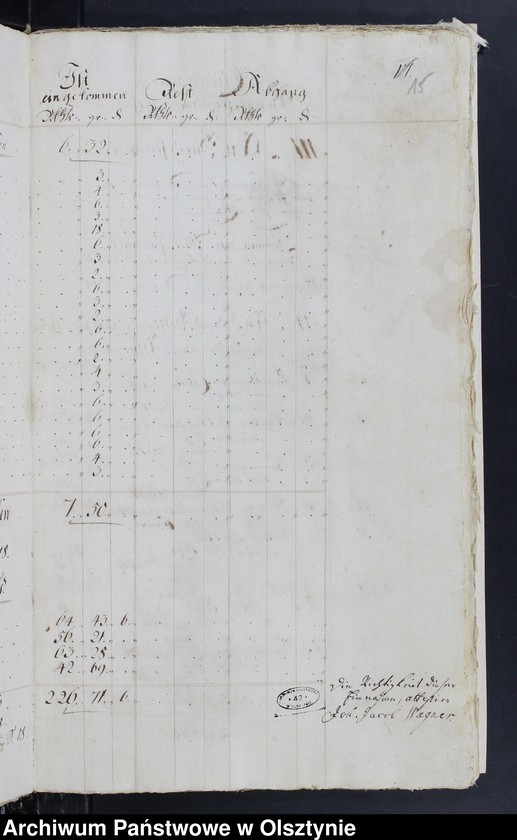 15
Ist
eingekommen Rest Abgang
Rthlr. gr. d. Rthlr. gr. d. Rthlr. gr. d.
6. 32.
3.
4.
6.
3.
18.
6.
3.
2.
6.
3.
2.
6.
6.
2.
4.
3.
6.
6.
6.
6.
4.
3.
7. 50.
64. 43. 6.
56. 21.
63. 28.
42. 69.
226. 71. 6.
Die Richtigkeit dieser
Einnahm, attestire
Joh. Jacob Wagner
Archiwum Państwowe w Olsztynie